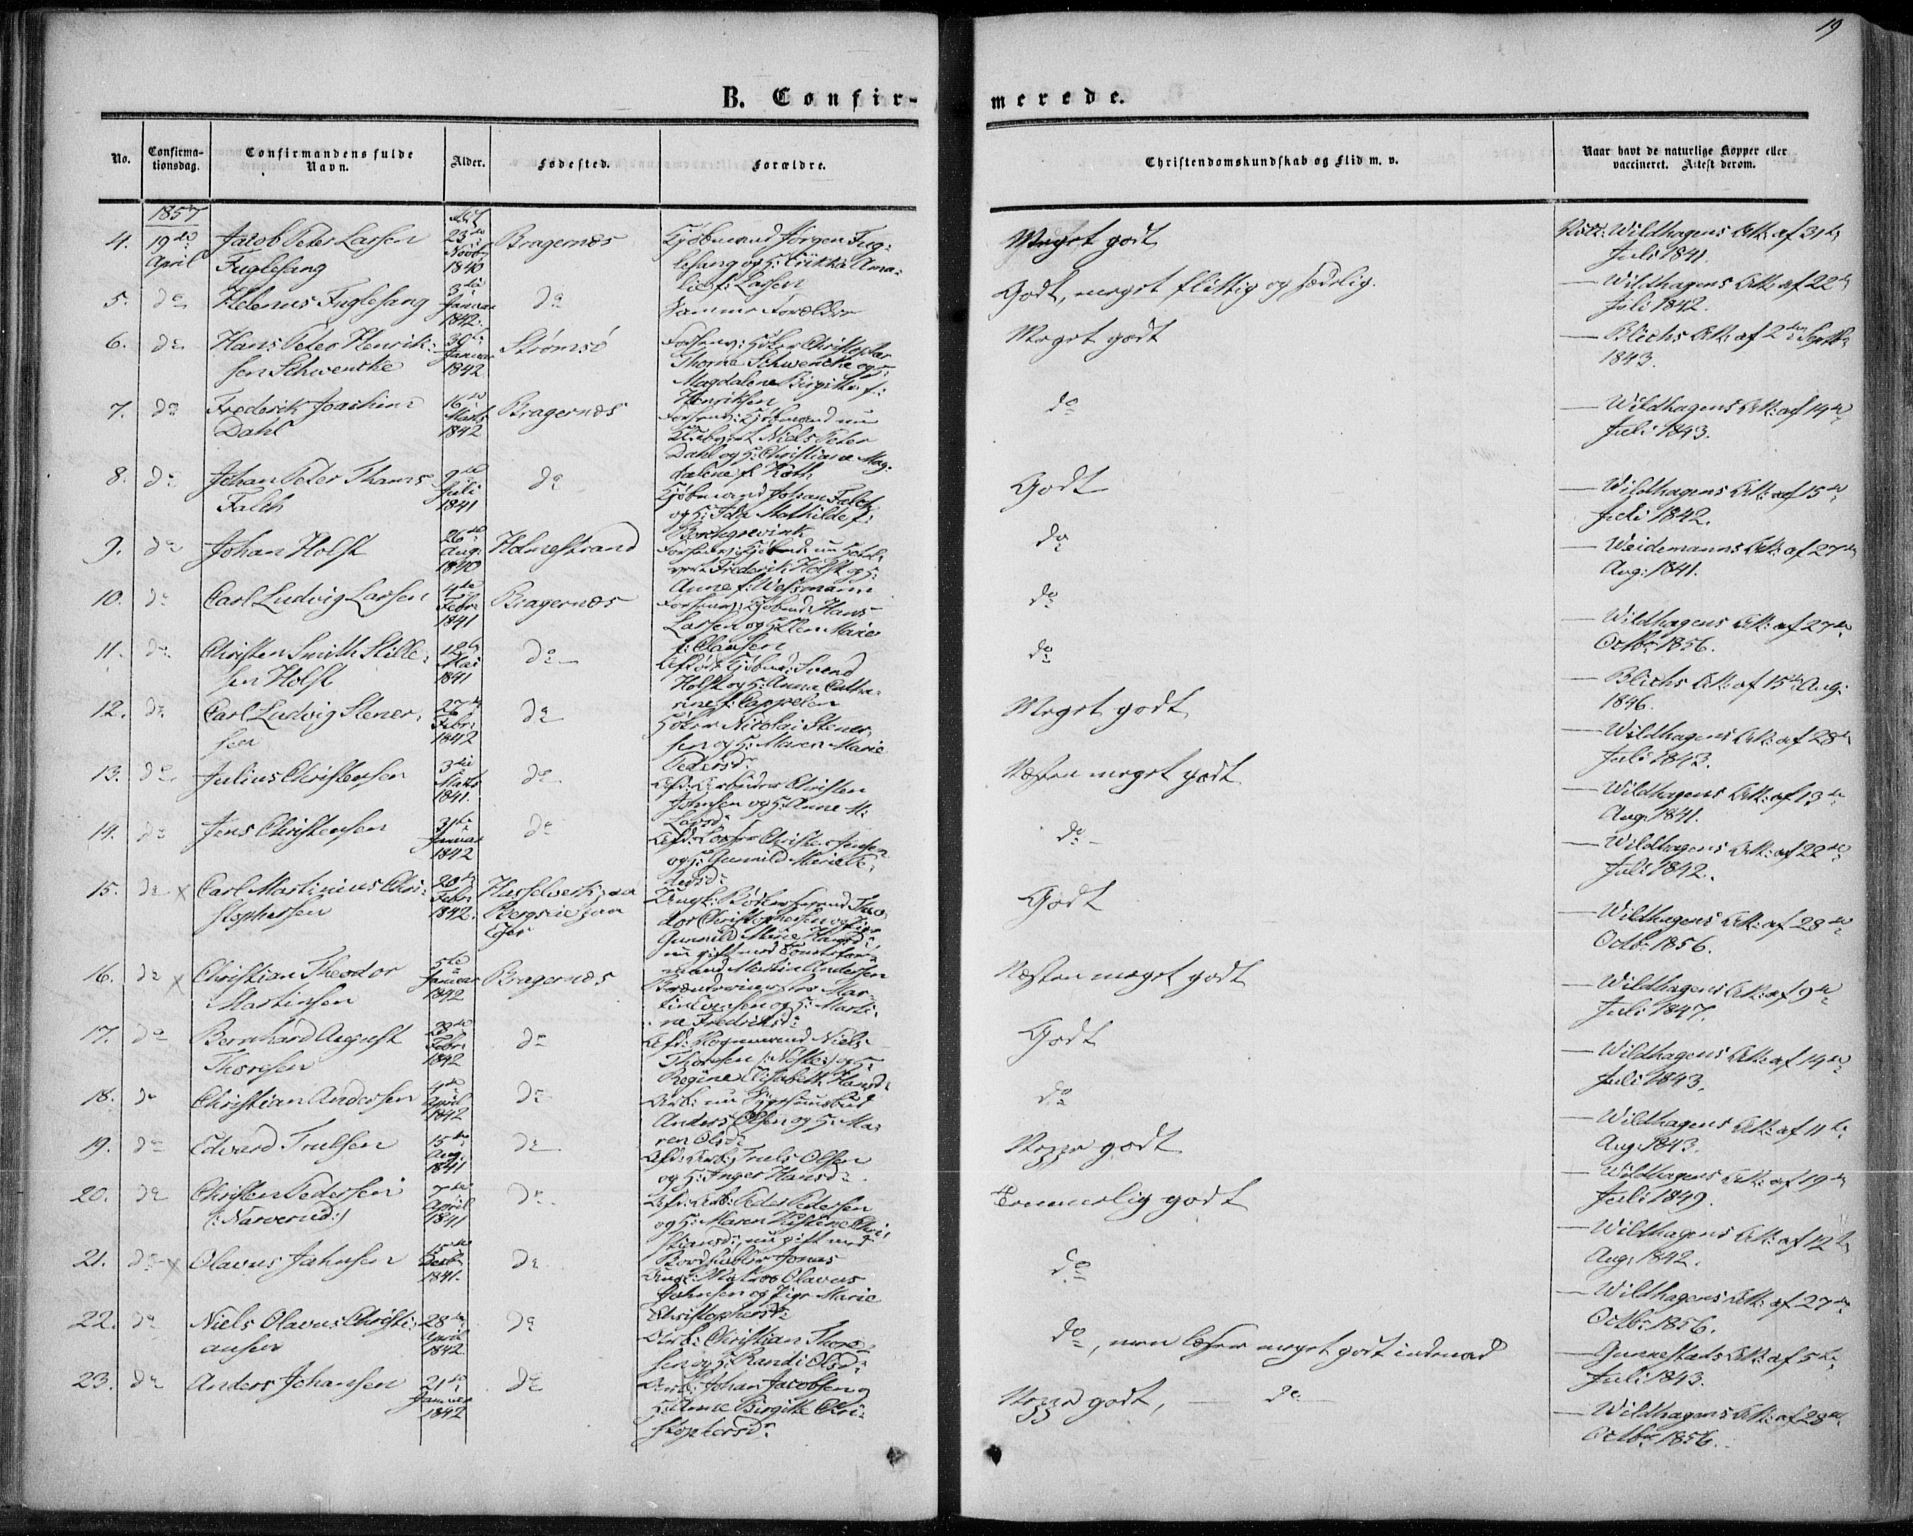 19
B. Confir-
merede.
No.
Confirma-
tionsdag.
Confirmandens fulde
Navn.
Alder.
Fødested.
Forældre.
Christendomskundskab og Flid m. v.
Naar havt de naturlige Kopper eller
vaccineret. Attest derom.
1857
4. 19de April
Jacob Peter Larsen
Fuglesang
23de
Novb:
1840
Bragernæs
Kjøbmand Jørgen Fug-
lesang og H: Erikka Ama-
lie f: Larsen
Meget godt
Wildhagens Att: af 31te
Juli 1841.
5. do
Helenus Fuglesang
3die
Januar
1842.
do
Samme Forældre
Godt, meget flittig og sædelig.
— Wildhagens Att: af 22de
Juli 1842.
6. do
Hans Peter Henrik-
sen Schwencke
30te
Januar
1842
Strømsø
Høker Christopher
Thorne Schwencke og H:
Magdalene Birgitte f:
Henriksen
Meget godt
— Blichs Att: af 2den Septbr
1843.
7. do
Frederik Joachim
Dahl
16de
Marts
1842
Bragernæs
Niels Peter
Dahl og H: Christiane Mag-
dalene f: Roth
do
— Wildhagens Att: af 14de
Juli 1843.
8. do
Johan Peter Thams
Falch
9de
Juli
1841
do
Kjøbmand Johan Falch
og H: Ida Mathilde f:
Borchgrevink
Godt
— Wildhagens Att: af 15de
Juli 1842.
9. do
Johan Holst
26de
Aug:
1840
Holmestrand
Frederik Holst og H:
Anne f: Wessmann
do
— Weidemanns Att: af 27de
Aug: 1841.
10. do
Carl Ludvig Larsen
4de
Febr:
1841
Bragernæs
Hans
Larsen og H: Ellen Marie
f: Clausen
do
— Wildhagens Att: af 27de
Octbr 1856.
11. do
Christen Smith Stille-
sen Holst
12te
Mai
1841
do
Svend
Holst og H: Anna Catha-
rine f: Cappelen
do
— Blichs Att: af 15de Aug:
1846.
12. do
Carl Ludvig Stener-
sen
27de
Febr:
1842
do
Høker Nicolai Stener-
sen og H: Maren Marie
Pedersd:
Meget godt
— Wildhagens Att: af 28de
Juli 1843.
13. do
Julius Christensen
3die
Marts
1841.
do
Afd: Arbeider Christen
Johnsen og H: Anne M:
Larsd:
Næsten meget godt
— Wildhagens Att: af 13de
Aug: 1841.
14. do
Jens Christensen
31te
Januar
1842
do
Christen Jensen
og H: Gunnild Marie
do
— Wildhagens Att: af 22de
Juli 1842.
15. do x
Carl Martinius Chri-
stophersen
20de
Febr:
1842.
Hasselverk
Eger
Christophersen og Pige
Gunnild Marie Hansd:,
nu gift med
Martin Andersen
Godt
— Wildhagens Att: af 28de
Octbr 1856.
16. do x
Christian Theodor
Martinsen
5te
Januar
1842
Bragernæs
Mar-
tin Evensen og H: Marti-
ne Fredriksd:
Næsten meget godt
— Wildhagens Att: af 9de
Juli 1847.
17. do
Bernhard August
Thoresen
Febr:
1842
do
Niels
Thoresen og H:
Regine Elisabeth Hansd:
Godt
— Wildhagens Att: af 14de
Juli 1843.
18. do
Christian Andersen
April
1842
do
Anders Olsen og H: Ma-
ren Olsd:
do
— Wildhagens Att: af 11te
Aug: 1843.
19. do
Edvard Truelsen
15de
Aug:
1841
do
Afd: Arb: Truls Olsen
og H: Inger Hansd:
Neppe godt
— Wildhagens Att: af 19de
Juli 1849.
20. do
Christen Pedersen
(: Narverud:)
7de
April
1841
do
Afd: Arb: Peder Pedersen
og H: Maren Kirstine Chri-
stiansd:, nu gift med
Jonas
Temmelig godt
— Wildhagens Att: af 12te
Aug: 1842.
21. do x
Olavus Johnsen
15de
1841.
do
Ungk: Matros Olavus
Johnsen og Pige Marie
Christophersd:
do
— Wildhagens Att: af 27de
Octbr 1856.
22. do
Niels Olavus Christi-
ansen
28de
April
1842.
do
Arb: Christian Thore-
sen og H: Randi Olsd:
do, men læser meget godt indenad
— Gunnestads Att: af 5te
Juli 1843.
23. do
Anders Johansen
21de
Januar
1842
do
Arb: Johan Jacobsen og
Birgitte Chri-
stophersd:
Neppe godt, — do —
— Wildhagens Att: af 28de
Octbr 1856.